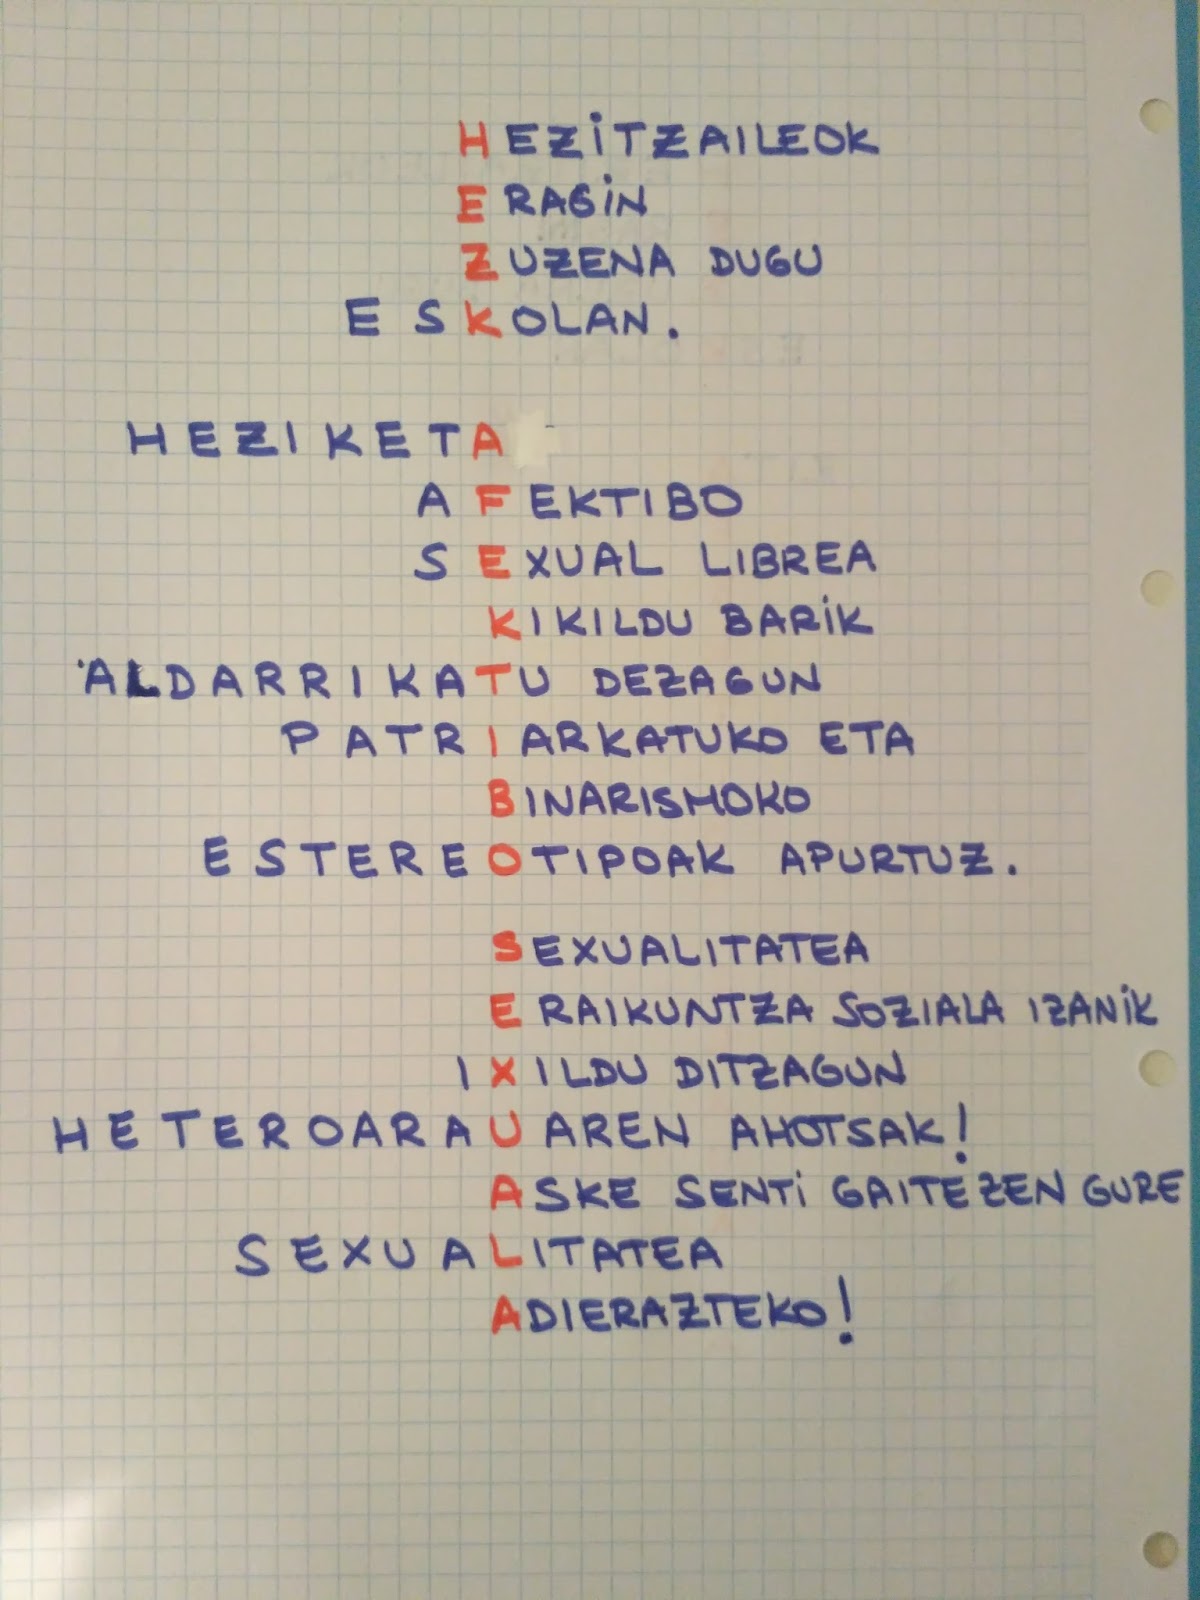 HEZITZAILEOK
ERAGIN
ZUZENA DUGU
ESKOLAN.
HEZIKETA
AFEKTIBO
SEXUAL LIBREA
KIKILDU BARIK
ALDARRIKATU DEZAGUN
PATRIARKATUKO ETA
BINARISMOKO
ESTEREOTIPOAK APURTUZ.
SEXUALITATEA
ERAIKUNTZA SOZIALA IZANIK
IXILDU DITZAGUN
HETEROARAUAREN AHOTSAK!
ASKE SENTI GAITEZEN GURE
SEXUALITATEA
ADIERAZTEKO!